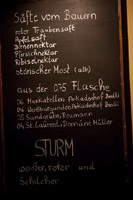 Säfte vom Bauern
roter Traubensaft
Apfelsaft
Birnennektar
Pfirsichnektar
Ribiselnektar
steirischer Most (alk)
aus der 0,75 Flasche
06 Muskateller,
St. Laurent, Domäne Müller
STURM
weißer, roter und
Schilcher